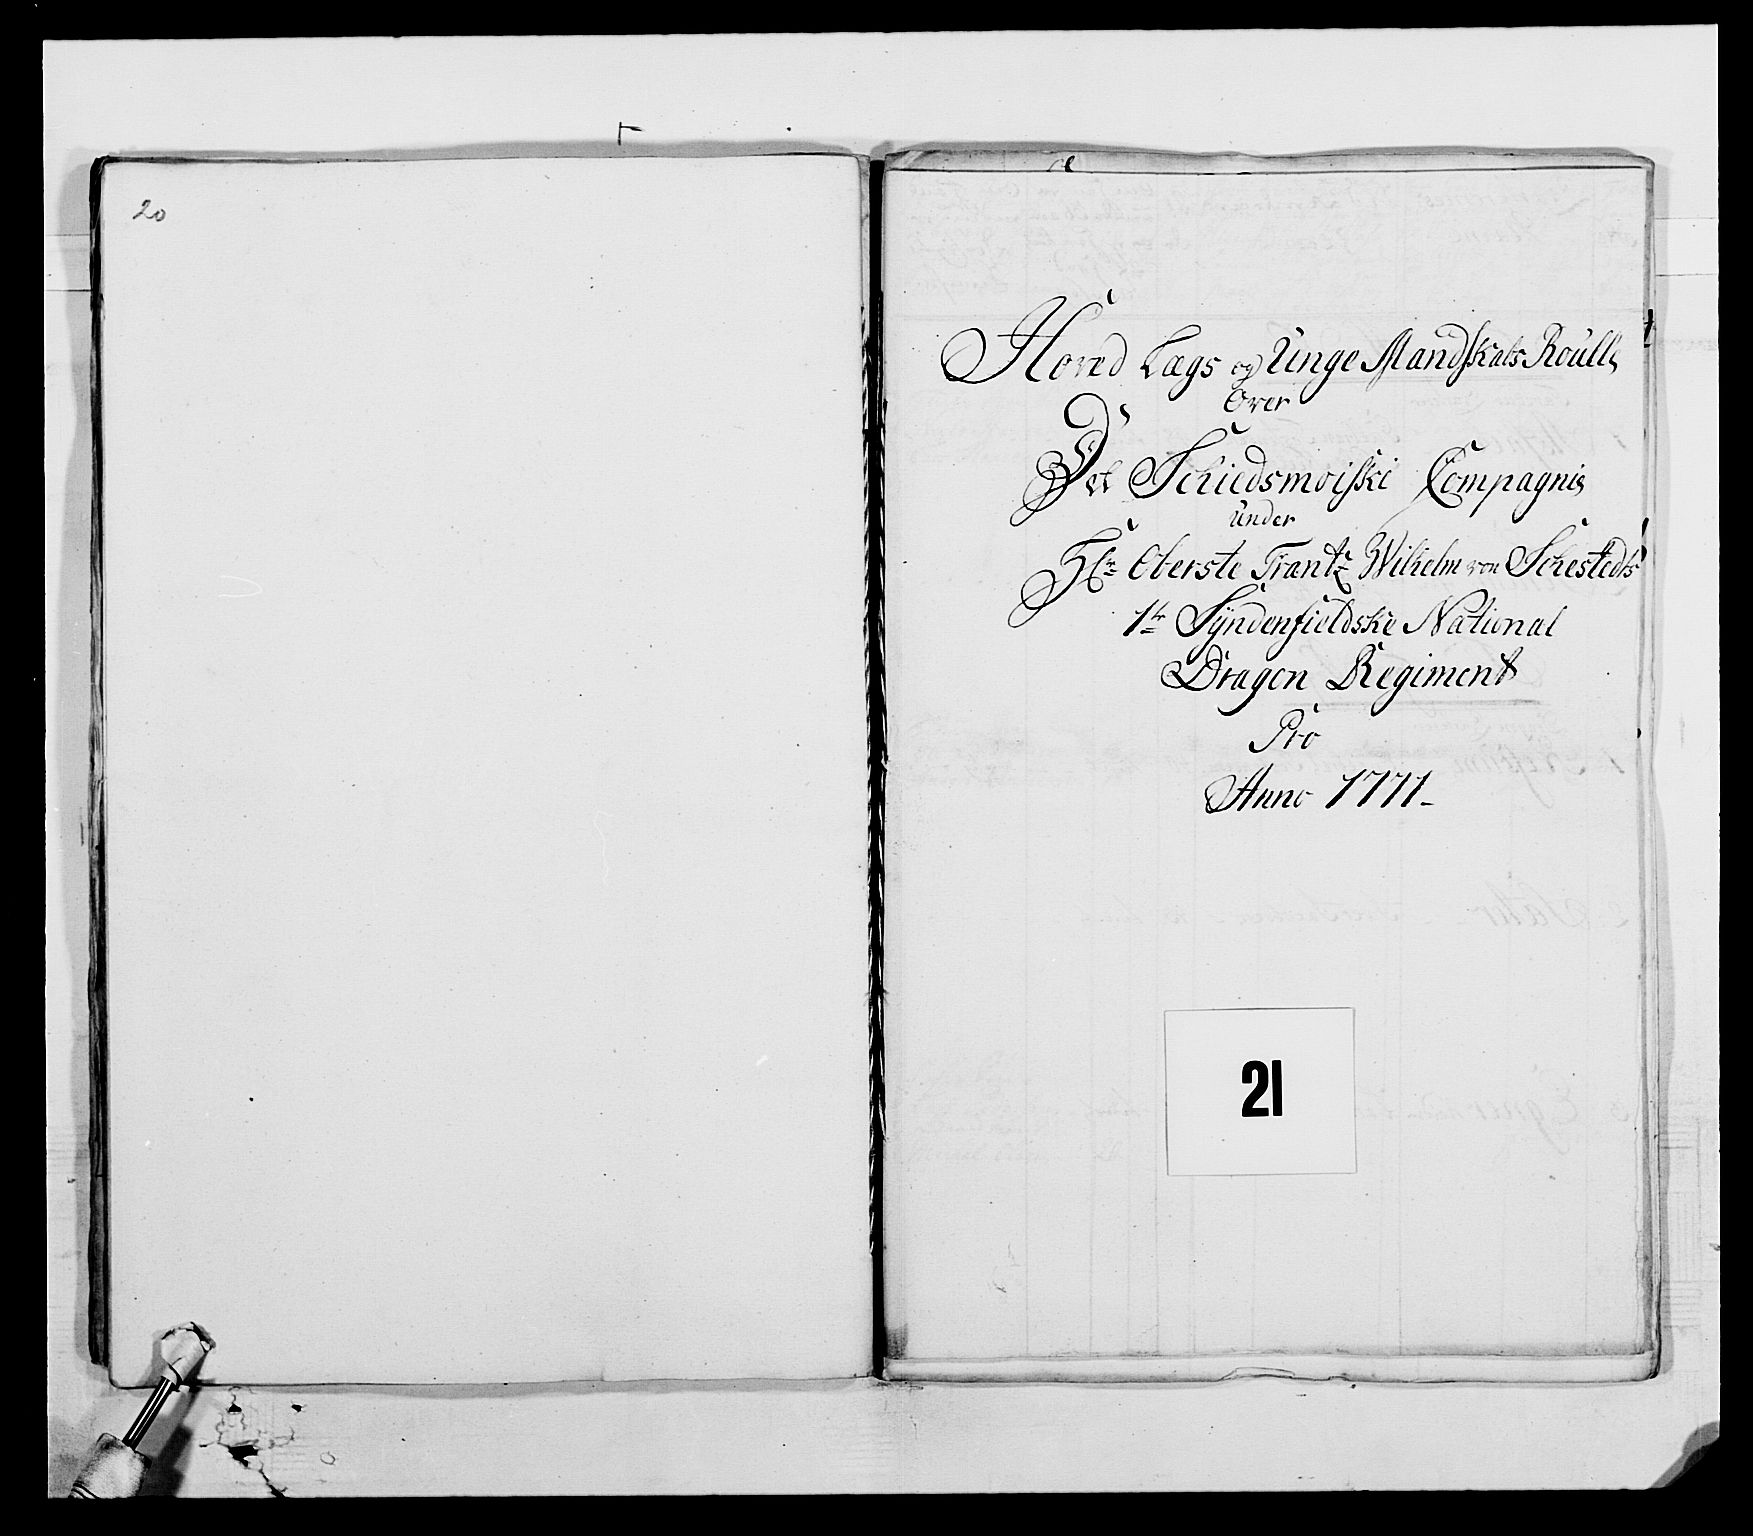 20
Hoved Lægs og Unge Mandskabs Roulle
Over
Det Schiedsmoiske Compagnie
Under
Hr Oberste Frantz Wilhelm von Schestedts
1te Syndenfieldske National
Dragon Regiment
Pro
Anno 1771
21